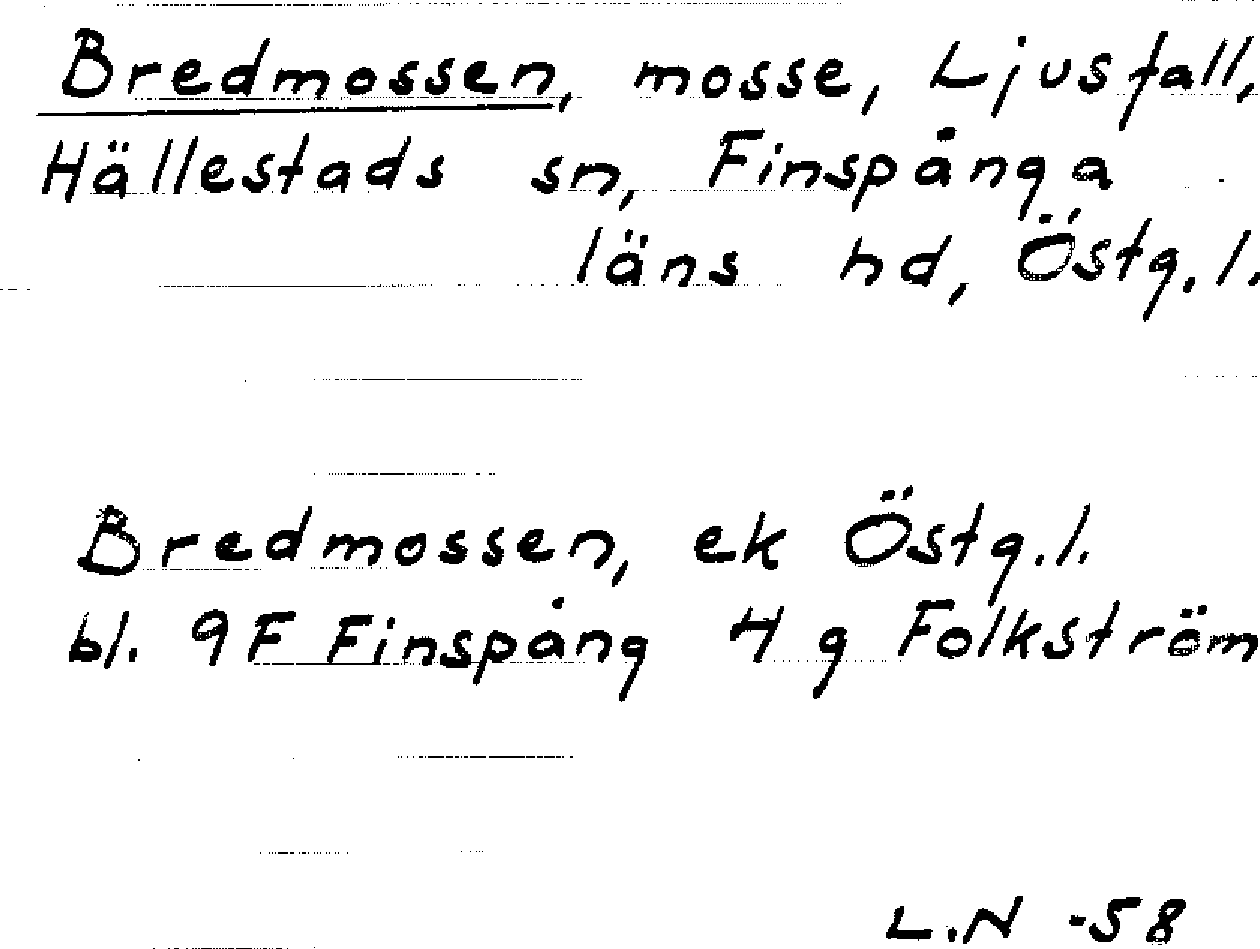 Bredmossen, mosse, Ljusfall,
Hällestads sn, Finspånga
läns hd, Östg.l.
Bredmossen, ek Östg.l.
bl. 9F Finspång 4 g Folkström
L.N -58